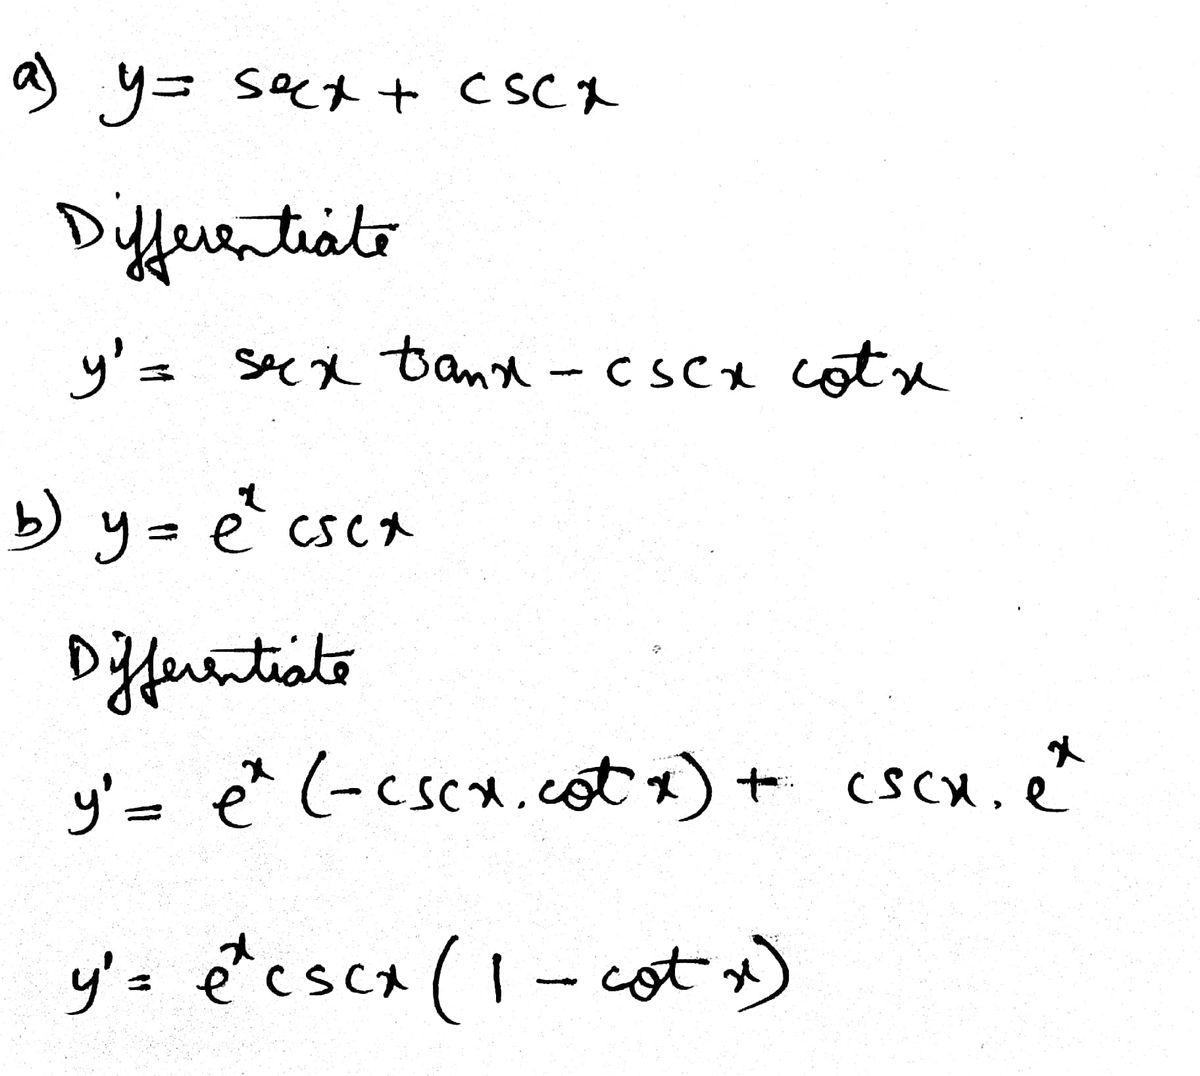 a) y = sec x + csc x
Differentiate
y' = sec x tan x - csc x cot x
b) y = e^x csc x
Differentiate
y' = e^x (-csc x . cot x) + csc x . e^x
y' = e^x csc x (1 - cot x)